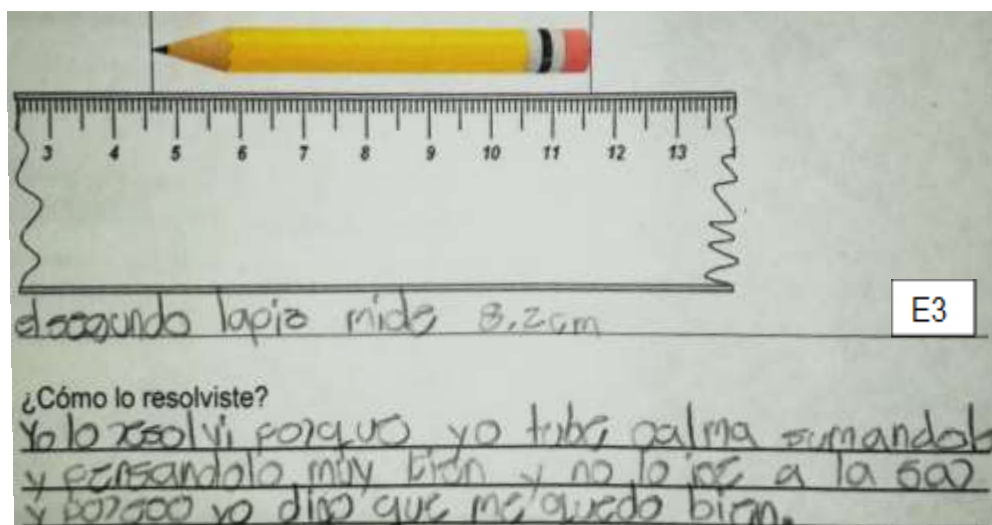 3 4 5 6 7 8 9 10 11 12 13
el segundo lapiz mide 8.2 cm
E3
¿Cómo lo resolviste?
Yo lo resolvi porque yo tube calma sumandolo
y pensandolo muy bien y no lo ise a la
y poreso yo digo que me quedo bien.